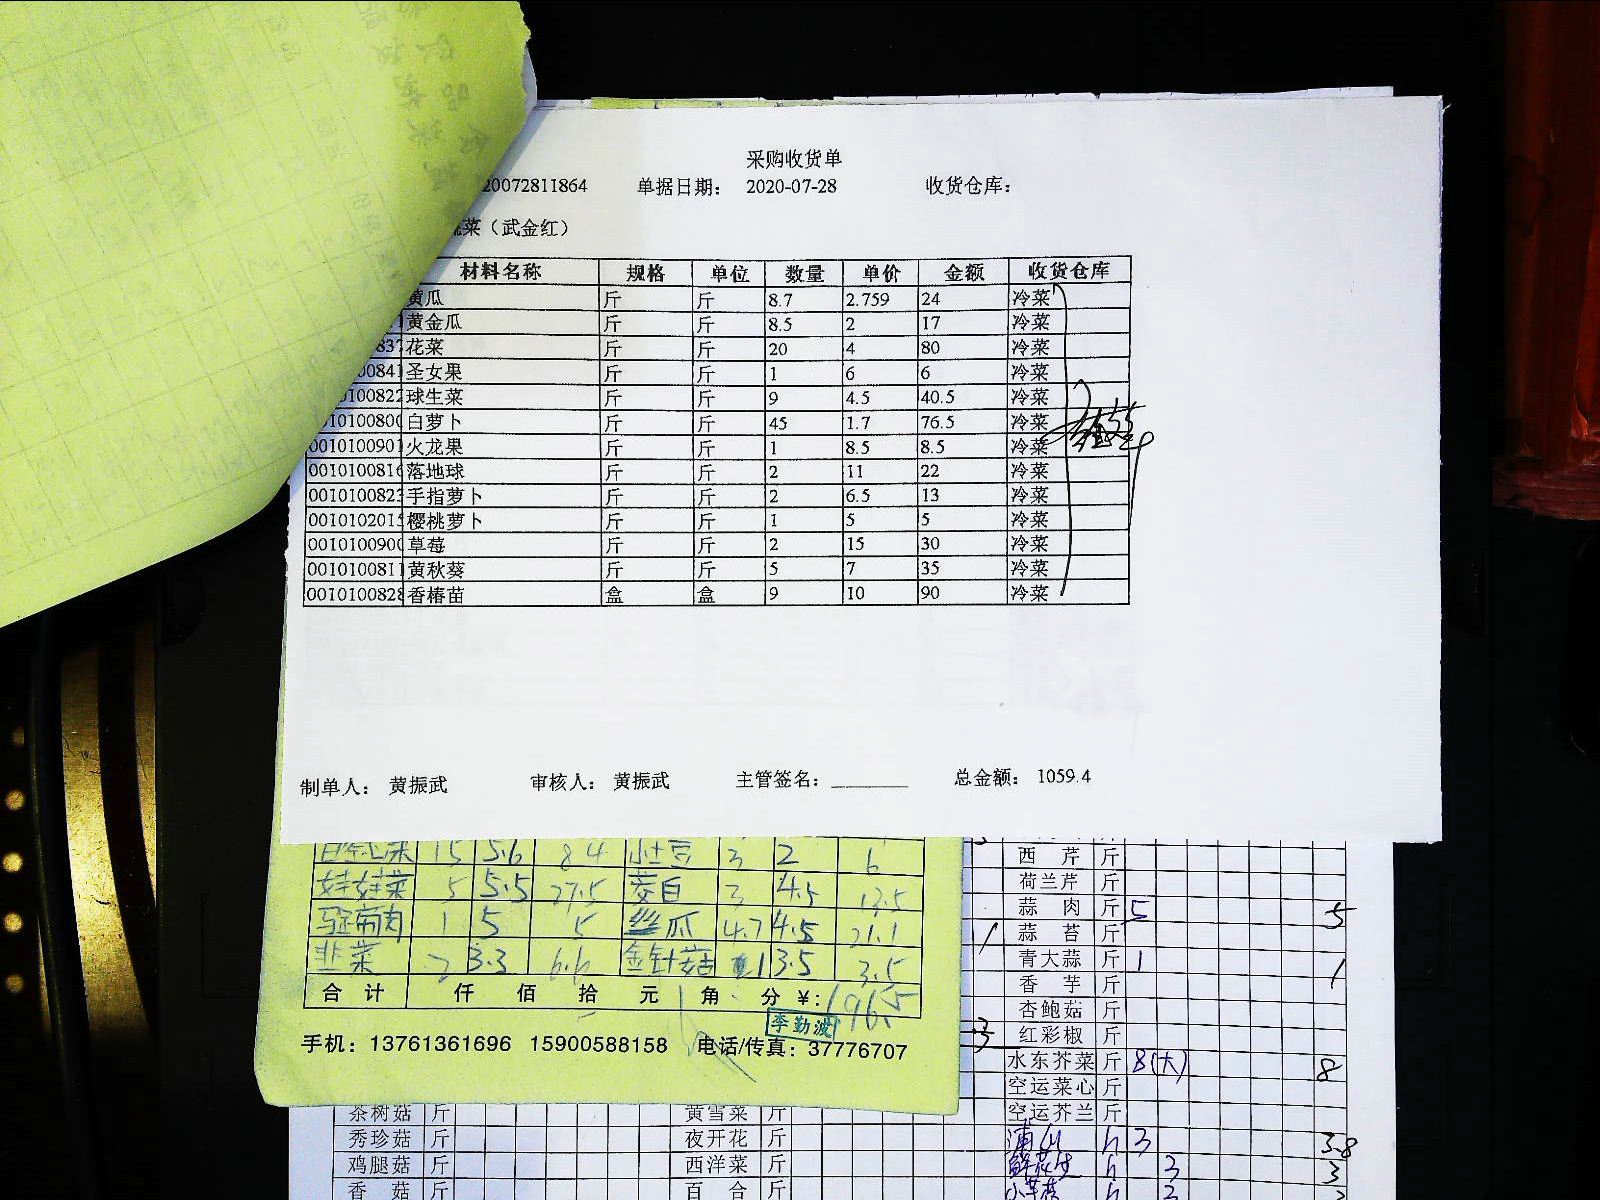 采购收货单
20072811864 单据日期： 2020-07-28 收货仓库：
菜（武金红）
材料名称 规格 单位 数量 单价 金额 收货仓库
黄瓜 斤 斤 8.7 2.759 24 冷菜
黄金瓜 斤 斤 8.5 2 17 冷菜
花菜 斤 斤 20 4 80 冷菜
00841 圣女果 斤 斤 1 6 6 冷菜
0100822 球生菜 斤 斤 9 4.5 40.5 冷菜
010100800 白萝卜 斤 斤 45 1.7 76.5 冷菜
0010100901 火龙果 斤 斤 1 8.5 8.5 冷菜
0010100816 落地球 斤 斤 2 11 22 冷菜
0010100823 手指萝卜 斤 斤 2 6.5 13 冷菜
0010102015 樱桃萝卜 斤 斤 1 5 5 冷菜
0010100900 草莓 斤 斤 2 15 30 冷菜
0010100811 黄秋葵 斤 斤 5 7 35 冷菜
0010100828 香椿苗 盒 盒 9 10 90 冷菜
制单人： 黄振武 审核人： 黄振武 主管签名： 总金额： 1059.4
15 5.6 84 小土豆 3 2 6
娃娃菜 5 5.5 27.5 茭白 3 4.5 13.5
1 5 5 丝瓜 4.7 4.5 21.1
韭菜 2 3.3 6.6 金针菇 1 3.5 3.5
合计 仟 佰 拾 元 角 分 ¥: 696.5
李勤波
手机：13761361696 15900588158 电话/传真：37776707
西芹 斤
荷兰芹 斤
蒜肉 斤 5 5
蒜苔 斤
青大蒜 斤 1 1
香芋 斤
杏鲍菇 斤
3 红彩椒 斤
水东芥菜 斤 8(大) 8
空运菜心 斤
茶树菇 斤 黄雪菜 斤 空运芥兰 斤
秀珍菇 斤 夜开花 斤 3 3.8
鸡腿菇 斤 西洋菜 斤 鲜花生 3 3
香菇 斤 百合 斤